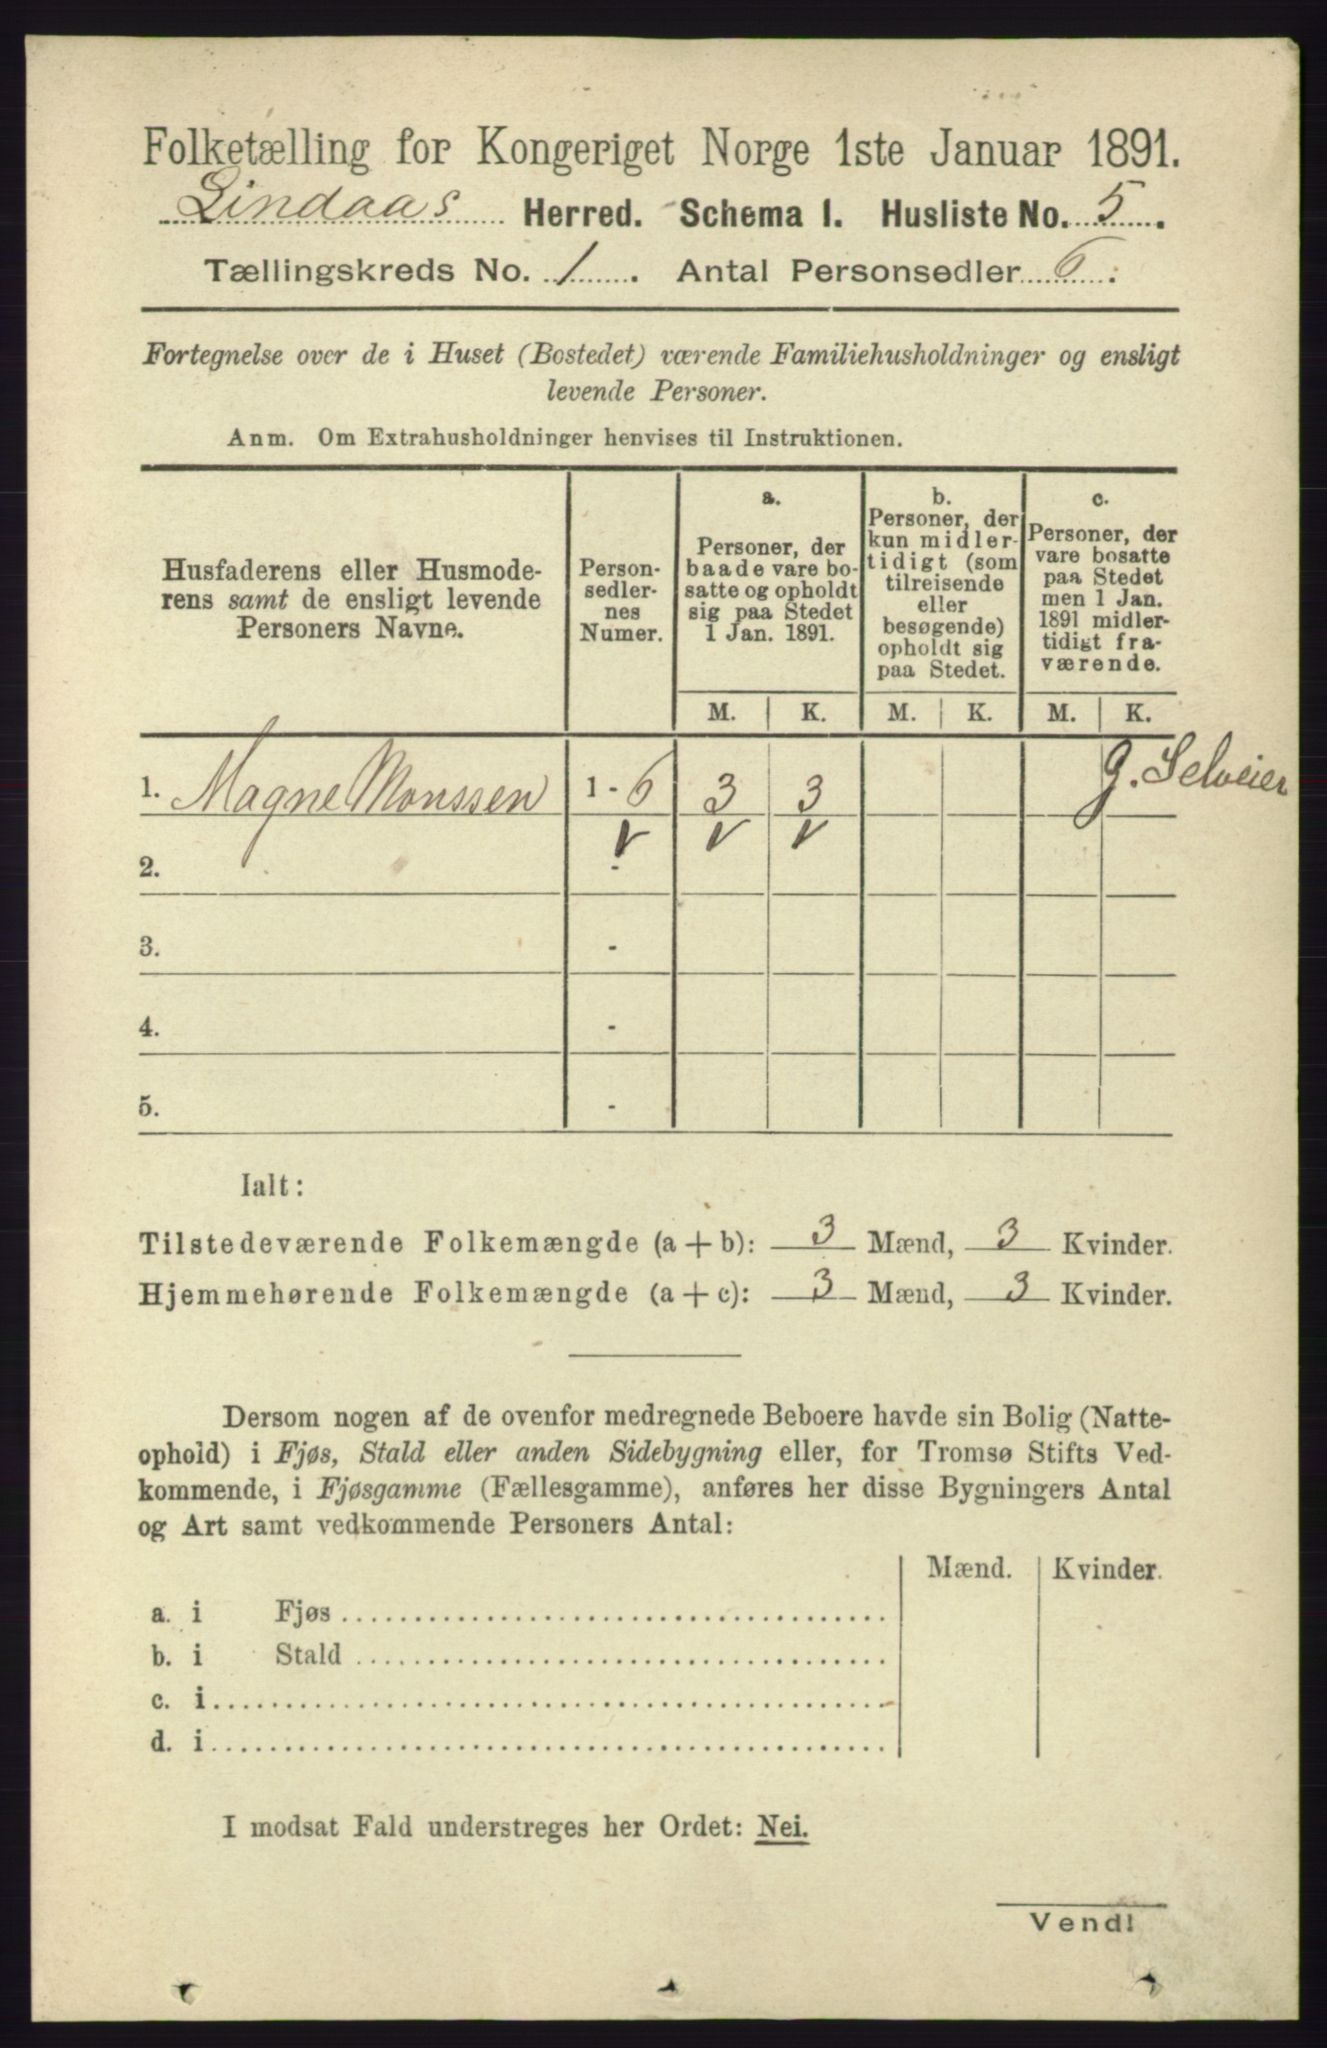 Folketælling for Kongeriget Norge 1ste Januar 1891.
Lindaas Herred. Schema 1. Husliste No. 5.
Tællingskreds No. 1. Antal Personsedler 6.
Fortegnelse over de i Huset (Bostedet) værende Familiehusholdninger og ensligt
levende Personer.
Anm. Om Extrahusholdninger henvises til Instruktionen.
Husfaderens eller Husmode-
rens samt de ensligt levende
Personers Navne.
Person-
sedler-
nes
Numer.
a.
Personer, der
baade vare bo-
satte og opholdt
sig paa Stedet
1 Jan. 1891.
b.
Personer, der
kun midler-
tidigt (som
tilreisende
eller
besøgende)
opholdt sig
paa Stedet.
c.
Personer, der
vare bosatte
paa Stedet
men 1 Jan.
1891 midler-
tidigt fra-
værende.
M. K. M. K. M. K.
1. Magne Monssen 1 - 6 3 3 G. Selveier
2. - v v v
3. -
4. -
5. -
Ialt:
Tilstedeværende Folkemængde (a + b): 3 Mænd, 3 Kvinder.
Hjemmehørende Folkemængde (a + c): 3 Mænd, 3 Kvinder.
Dersom nogen af de ovenfor medregnede Beboere havde sin Bolig (Natte-
ophold) i Fjøs, Stald eller anden Sidebygning eller, for Tromsø Stifts Ved-
kommende, i Fjøsgamme (Fællesgamme), anføres her disse Bygningers Antal
og Art samt vedkommende Personers Antal:
Mænd. Kvinder.
a. i Fjøs
b. i Stald
c. i
d. i
I modsat Fald understreges her Ordet: Nei.
Vend!